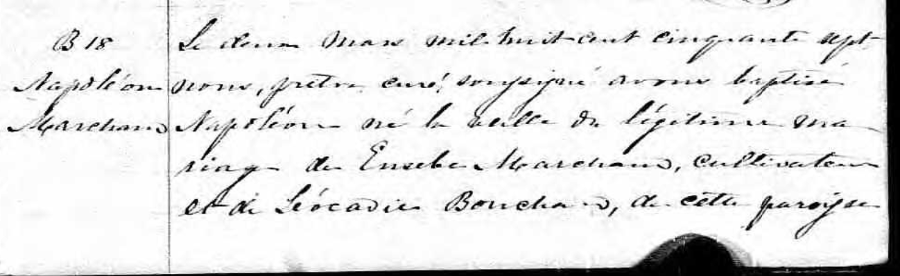 B 18
Napoléon
Marchand
Le deux mars mil huit cent cinquante sept
nous, prêtre curé, soussigné avons baptisé
Napoléon né la veille du légitime ma
riage de Eusebe Marchand, cultivateur
et de Léocadie Bouchard, de cette paroisse